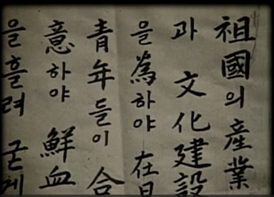 祖國의 產業
과 文化建設
을 為하야 在日
青年들이 合
意하야 鮮血
을 흘려 굳게